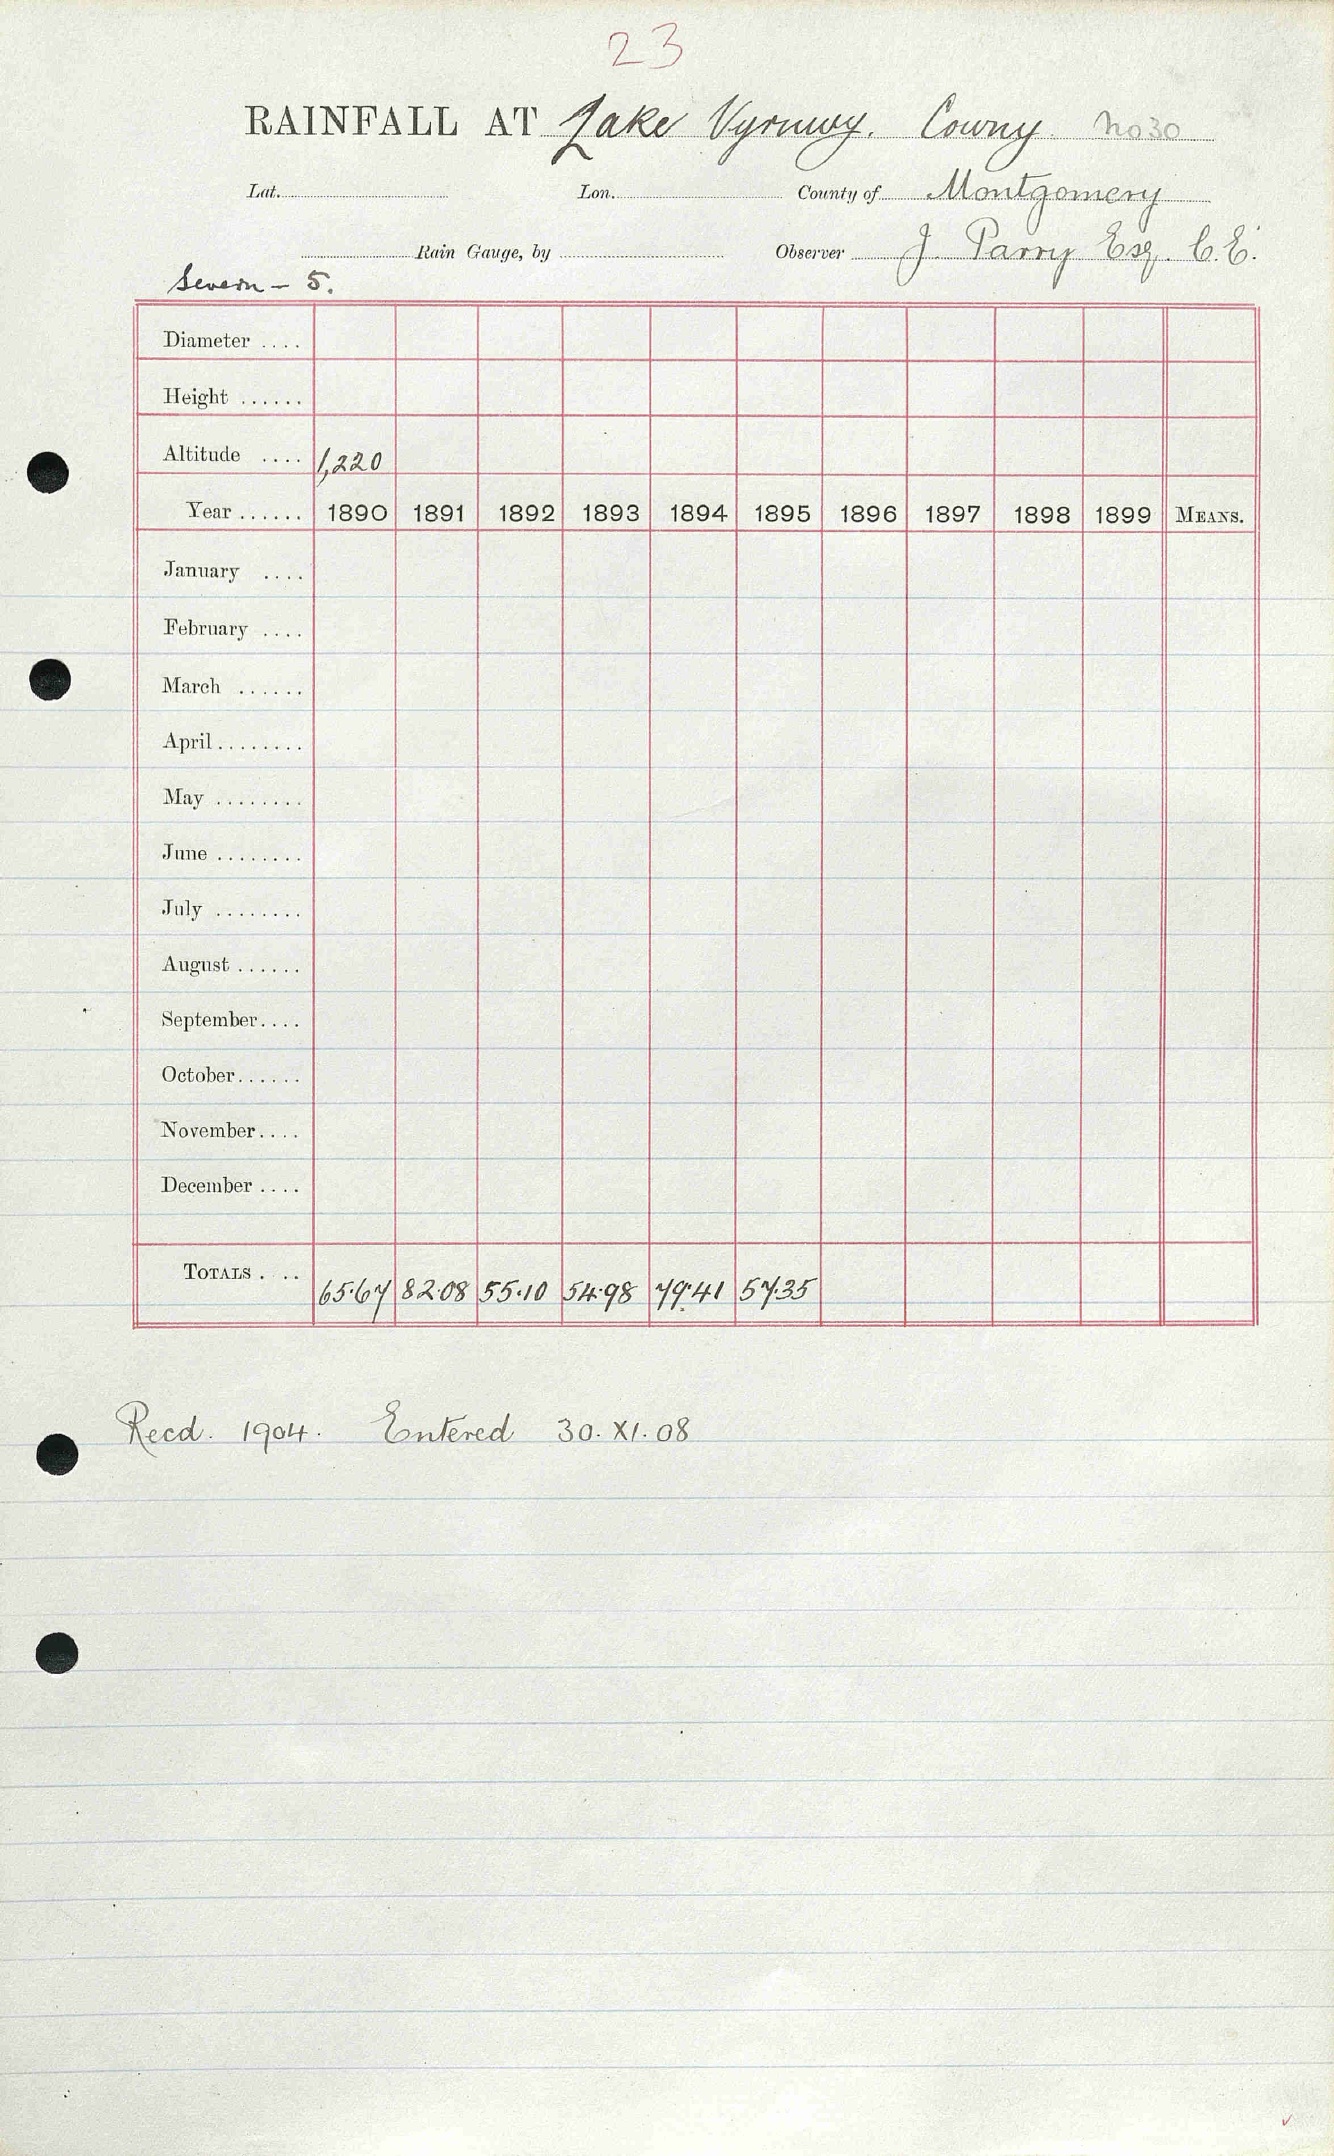 23
RAINFALL AT Lake Vyrnwy. Cowny. No 30
Lat. Lon. County of Montgomery
Rain Gauge, by Observer J. Parry Esq. C.E.
Severn - 5.
Diameter ....
Height ......
Altitude .... 1,220
Year ...... 1890 1891 1892 1893 1894 1895 1896 1897 1898 1899 MEANS.
January ....
February ....
March ......
April ........
May ........
June ........
July ........
August ......
September ....
October ......
November ....
December ....
TOTALS . .. 65.67 82.08 55.10 54.98 79.41 57.35
Recd. 1904. Entered 30. XI. 08